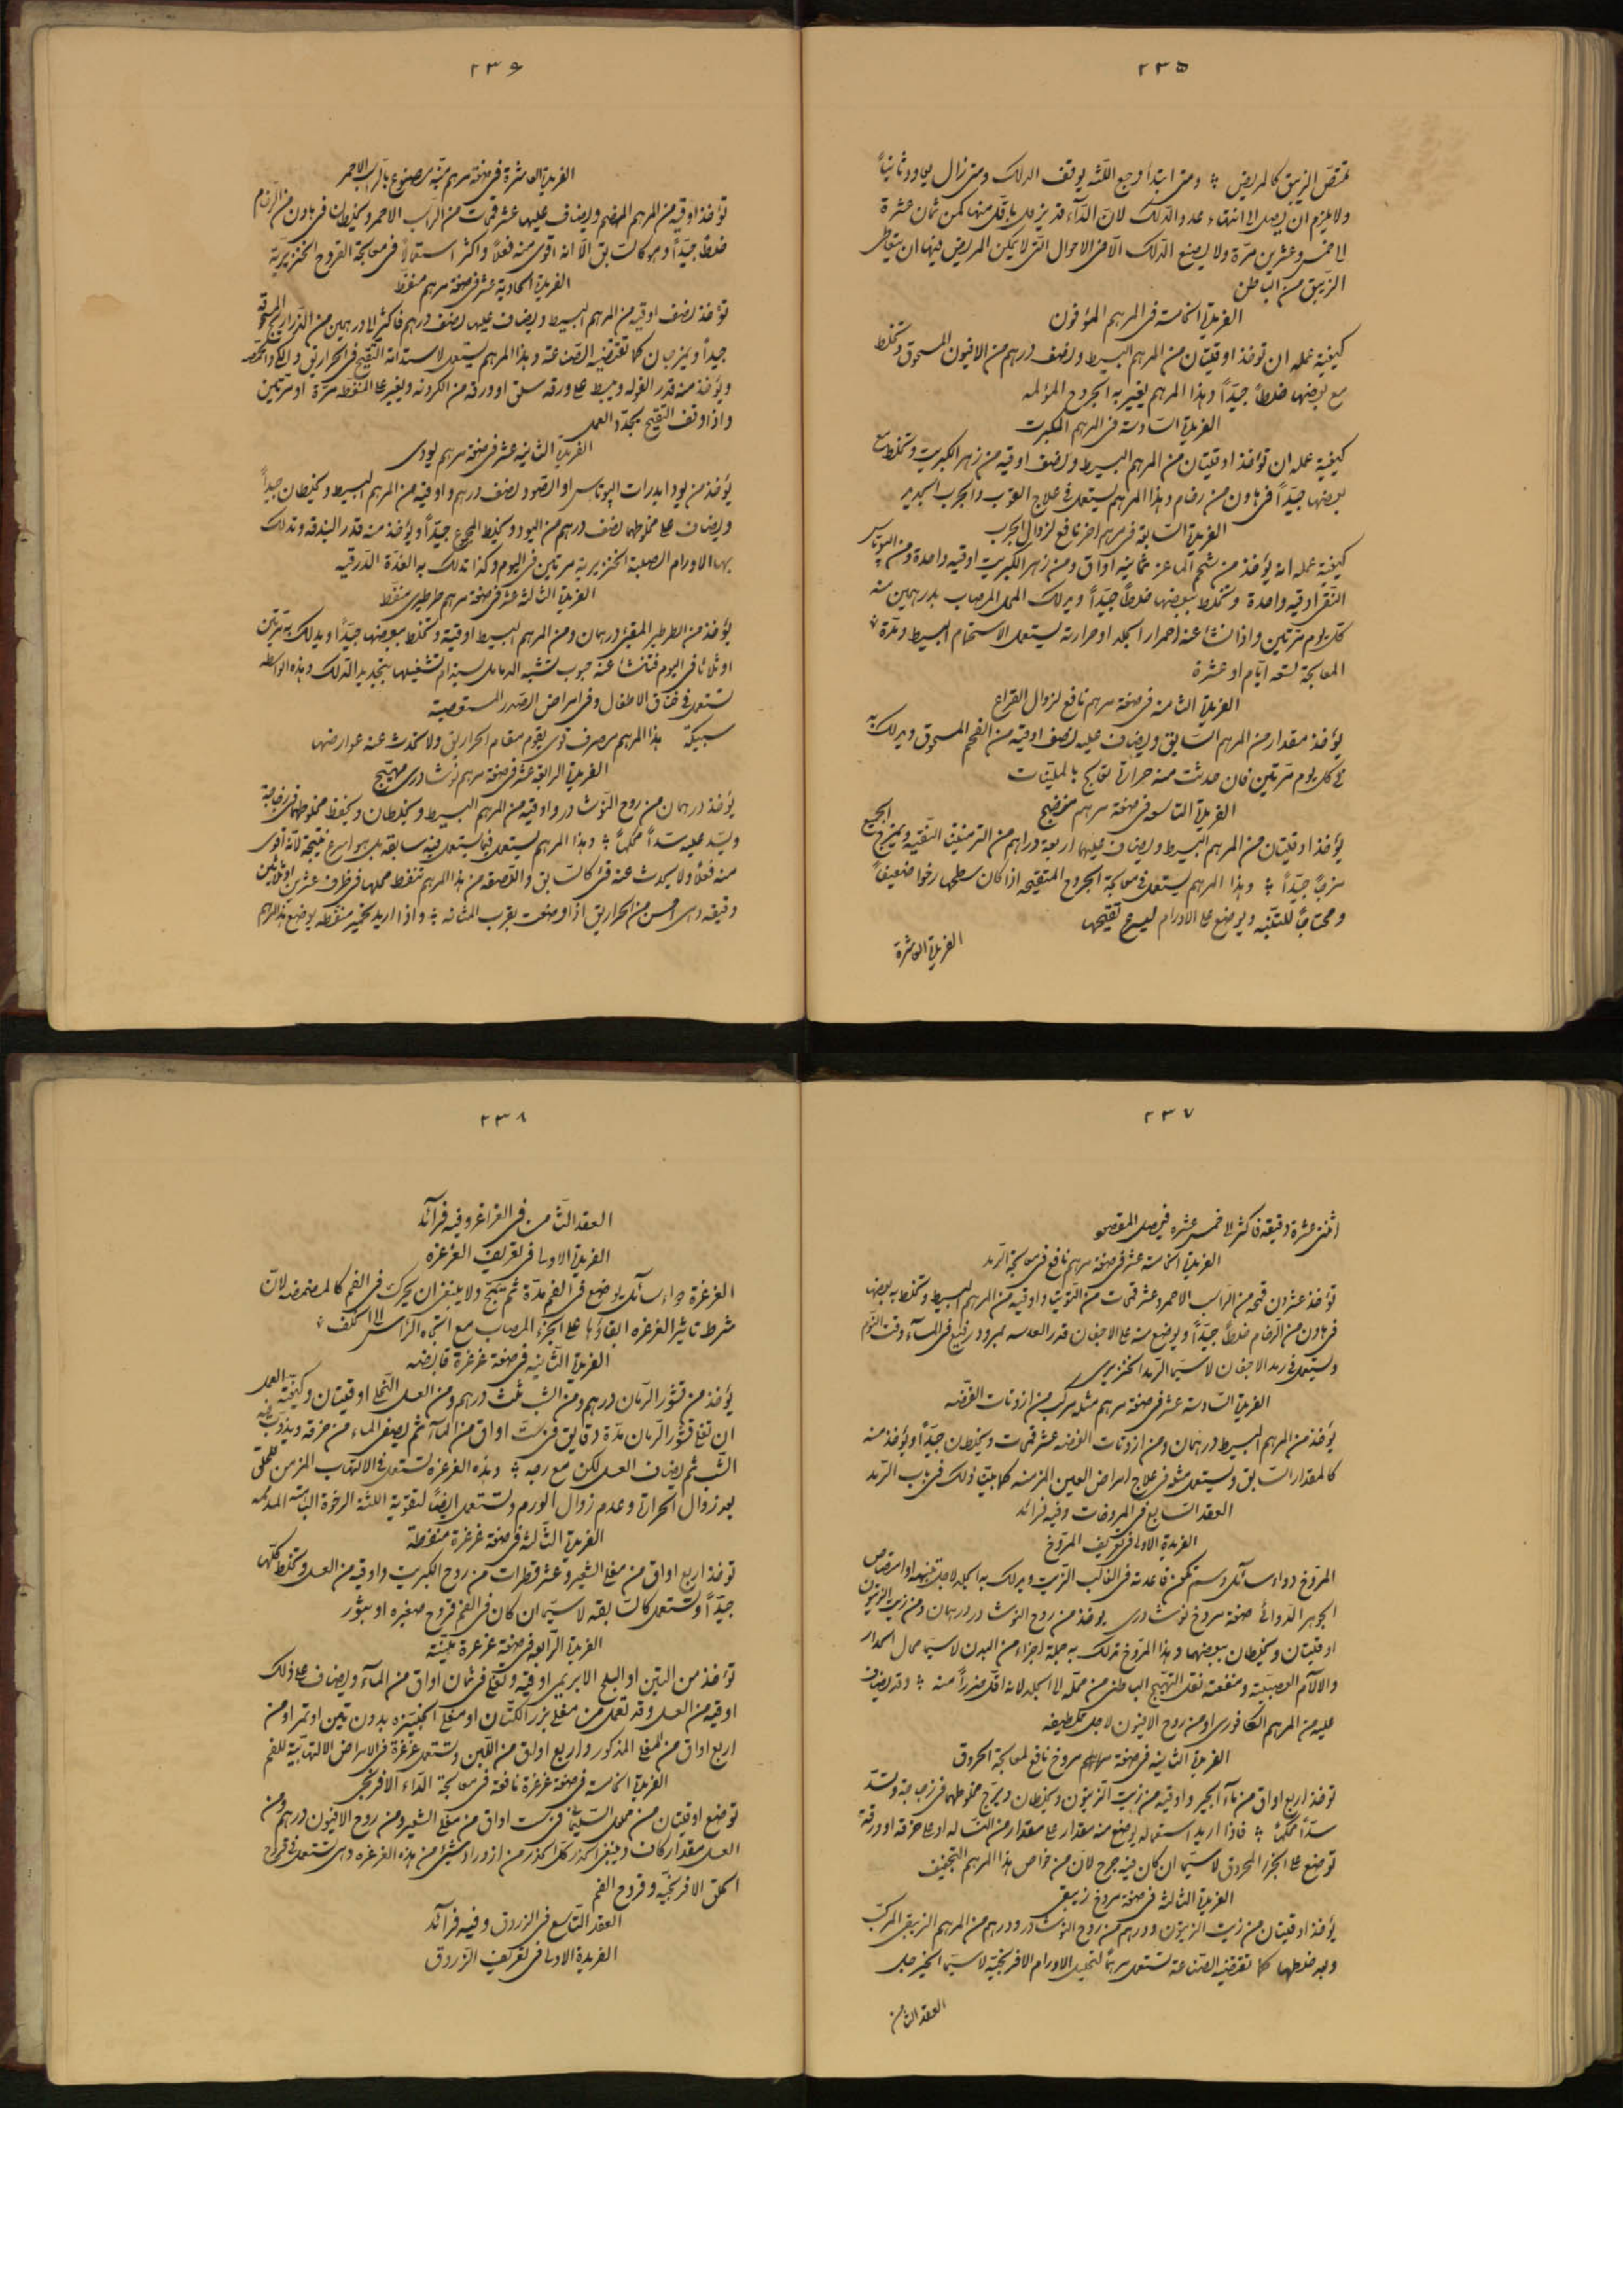 ٢٣٥
تمتص الزيبق كالمريض ؞ ومتى ابتدأ وجع اللثه يوقف الدلك ومتى زال يعاود ثانياً
ولا يلزم ان يصل الى انتهاء عدد الدلك لان الدآء قد يزول باقل منها كمن ثمان عشرة
الى خمس وعشرين مرة ولا يصنع الدلك الا فى الاحوال التى لا يمكن المريض فيها ان يتعاطى
الزيبق من الباطن
الفريدة الخامسة فى المرهم المؤفون
كيفية عمله ان تؤخذ اوقيتان من المرهم البسيط ونصف درهم من الافيون المسحوق وتخلط
مع بعضها خلطاً جيداً وهذا المرهم يغير به الجروح المؤلمه
الفريدة السادسة فى المرهم المكبرت
كيفية عمله ان تؤخذ اوقيتان من المرهم البسيط ونصف اوقيه من زهر الكبريت وتخلط مع
بعضها جيداً فى هاون من رخام وهذا المرهم يستعمل فى علاج القوب والجرب الجديد
الفريدة السابعة فى مرهم اخر نافع لزوال الجرب
كيفية عمله انه يؤخذ من شحم الماعز ثمانية آواق ومن زهر الكبريت اوقيه واحدة ومن البوتاس
النقى اوقيه واحدة وتخلط ببعضها خلطاً جيداً ويدلك المحل المصاب بدرهمين منه
كل يوم مرتين واذا نشا عنه احمرار الجلد او حرارته يستعمل الاستحمام البسيط ومدة
المعالجة تسعه ايام او عشرة
الفريدة الثامنه فى صفة مرهم نافع لزوال القراع
يؤخذ مقدار من المرهم السابق ويضاف عليه نصف اوقيه من الفحم المسحوق ويدلك به
فى كل يوم مرتين فان حدثت منه حرارة تعالج بالملينات
الفريدة التاسعه فى صفة مرهم منضج
يؤخذ اوقيتان من المرهم البسيط ويضاف عليهما اربعة دراهم من الترمنتينا النقيه ويمزج الجميع
مزجاً جيداً ؞ وهذا المرهم يستعمل فى معالجة الجروح المتقيحه اذا كان سطحها رخوا ضعيفاً
ومحتاجاً للتنبيه ويوضع على الاورام ليسرع تقيحها
الفريدة العاشرة
٢٣٦
الفريدة العاشرة فى صفة مرهم منبه مصنوع بالراسب الاحمر
تؤخذ اوقيه من المرهم المهضم ويضاف عليها عشر قمحات من الراسب الاحمر ويخلطان فى هاون من الرخام
خلطاً جيداً وهو كالسابق الا انه اقوى منه فعلا واكثر استعمالاً فى معالجة القروح الخنزيرية
الفريدة الحادية عشر فى صفة مرهم منفط
تؤخذ نصف اوقيه من المرهم البسيط ويضاف عليها نصف درهم فاكثر الى درهمين من الذراريح المسحوقه
جيداً ويمزجان كما تقتضيه الصناعة وهذا المرهم يستعمل لاستدامة التقيح فى الحراريق والكى والحمصه
ويؤخذ منه قدر الفوله ويبسط على ورقه سلق او ورقه من الكرونه ويغير على المنفطه مرة او مرتين
واذا وقف التقيح يجدد العمل
الفريدة الثانيه عشر فى صفة مرهم يودى
يؤخذ من يودايدرات البوتاس او الصود نصف درهم واوقيه من المرهم البسيط ويخلطان جيداً
ويضاف على مخلوطهما نصف درهم من اليود ويخلط المجموع جيداً ويؤخذ منه قدر البندقه وتدلك
بها الاورام الصلبة الخنزيرية مرتين فى اليوم وكذا تدلك به الغدة الدرقيه
الفريدة الثالثه عشر فى صفة مرهم طرطيرى منفط
يؤخذ من الطرطير المقيئ درهمان ومن المرهم البسيط اوقية وتخلط ببعضها جيداً ويدلك به مرتين
او ثلاثا فى اليوم فتنشا عنه حبوب تشبه الدمامل يستدام تشغيلها بتجديد الدلك وهذه الواسطه
تستعمل فى خناق الاطفال وفى امراض الصدر المستعصية
سبيكة هذا المرهم مصرف قوى يقوم مقام الحراريق ولا تحدث عنه عوارضها
الفريدة الرابعه عشر فى صفة مرهم نوشادرى مهيج
يؤخذ درهمان من روح النوشادر واوقيه من المرهم البسيط ويخلطان ويحفظ مخلوطهما فى زجاجة
ويسد عليه سداً محكماً ؞ وهذا المرهم يستعمل فيما يستعمل فيه سابقه بل هو اسرع نتيجة لانه اقوى
منه فعلاً ولا يحدث عنه قئ كالسابق واللصقه من هذا المرهم تنفط محلها فى ظرف عشرين او ثلاثين
دقيقه وهى احسن من الحراريق اذا وضعت بقرب المثانه ؞ واذا اريد تحمير منفطه يوضع هذا المرهم
٢٣٧
اثنى عشرة دقيقه فاكثر الى خمس عشره فيحصل المقصود
الفريدة الخامسة عشر فى صفة مرهم نافع فى معالجة الرمد
تؤخذ عشرون قمحه من الراسب الاحمر وعشر قمحات من التوتيا واوقيه من المرهم البسيط وتخلط ببعضها
فى هاون من الرخام خلطاً جيداً ويوضع منه على الاجفان قدر العدسه بمرود رفيع فى المسآء وقت النوم
ويستعمل فى رمد الاجفان لا سيما الرمد الخنزيرى
الفريدة السادسه عشر فى صفة مرهم مثله مركب من ازوتات الفضه
يؤخذ من المرهم البسيط درهمان ومن ازوتات الفضه عشر قمحات ويخلطان جيداً ويؤخذ منه
كالمقدار السابق ويستعمل مثله فى علاج امراض العين المزمنه كما بينا ذلك فى باب الرمد
العقد السابع فى المروخات وفيه فرائد
الفريدة الاولى فى تعريف المروخ
المروخ دواء سآئل دسم تكون قاعدته فى الغالب الزيت ويدلك به الجلد لاجل تنبيهه او امتصاص
الجوهر الدوائى صفة مروخ نوشادرى يؤخذ من روح النوشادر درهمان ومن زيت الزيتون
اوقيتان ويخلطان ببعضهما وهذا المروخ تدلك به جملة اجزاء من البدن لا سيما محال الحدار
والآلام العصبيه ومنفعته نقل التهيج الباطنى من محله الى الجلد لانه اقل ضرراً منه ؞ وقد يضاف
عليه من المرهم الكافورى او من روح الافيون لاجل تلطيفه
الفريدة الثانيه فى صفة مروخ نافع لمعالجة الحروق
تؤخذ اربع اواق من مآء الجير واوقيه من زيت الزيتون ويخلطان ويرج مخلوطهما فى زجاجة وتسد
سداً محكماً ؞ فاذا اريد استعماله يوضع منه مقدار على مقدار من النساله او على خرقه او ورقة
توضع على الجزء المحروق لا سيما ان كان فيه جرح لان من خواص هذا المرهم التجفيف
الفريدة الثالثه فى صفة مروخ زيبقى
يؤخذ اوقيتان من زيت الزيتون ودرهم من روح النوشادر ودرهم من المرهم الزيبقى المركب
وبعد خلطها كما تقتضيه الصناعة تستعمل مرهماً لتحليل الاورام الافرنجيه لا سيما الخيرجل
العقد الثامن
٢٣٨
العقد الثامن فى الغراغر وفيه فرآئد
الفريدة الاولى فى تعريف الغرغره
الغرغرة دواء سآئل يوضع فى الفم مدة ثم يمج ولا ينبغى ان يحرك فى الفم كالمضمضه لان
شرط تاثير الغرغره ابقاؤها على الجزء المصاب مع اتجاه الراس الى الخلف
الفريدة الثانيه فى صفة غرغرة قابضه
يؤخذ من قشور الرمان درهم ومن الشب ثلث درهم ومن العسل النحلى اوقيتان وكيفية العمل
ان تغلى قشور الرمان مدة دقايق فى ست اواق من المآء ثم يصفى الماء من خرقه ويذوب فيه
الشب ثم يضاف العسل لكن مع رجه ؞ وهذه الغرغره تستعمل فى الالتهاب المزمن للحلق
بعد زوال الحرارة وعدم زوال الورم وتستعمل ايضاً لتقوية اللثة الرخوة
الفريدة الثالثه فى صفة غرغرة منفطة
تؤخذ اربع اواق من مغلى الشعير وعشر قطرات من روح الكبريت واوقيه من العسل وتخلط كلها
جيداً وتستعمل كالسابقه لا سيما ان كان فى الفم قروح صغيره او بثور
الفريدة الرابعه فى صفة غرغرة ملينة
تؤخذ من التين او البلح الابريمى اوقيه وتغلى فى ثمان اواق من المآء ويضاف على ذلك
اوقيه من العسل وقد تعمل من مغلى بزر الكتان او مغلى الخبيزه بدون تين او تمر او من
اربع اواق من المغلى المذكور واربع اواق من اللبن وتستعمل غرغرة فى الامراض الالتهابية للفم
الفريدة الخامسة فى صفة غرغرة نافعة فى معالجة الدآء الافرنجى
توضع اوقيتان من محلول السليمانى فى ست اواق من مغلى الشعير ومن روح الافيون درهم ومن
العسل مقدار كاف وينبغى الحذر كل الحذر من ازدراد شئ من هذه الغرغره وهى تستعمل فى قروح
الحلق الافرنجيه وقروح الفم
العقد التاسع فى الزروق وفيه فرآئد
الفريدة الاولى فى تعريف الزروق